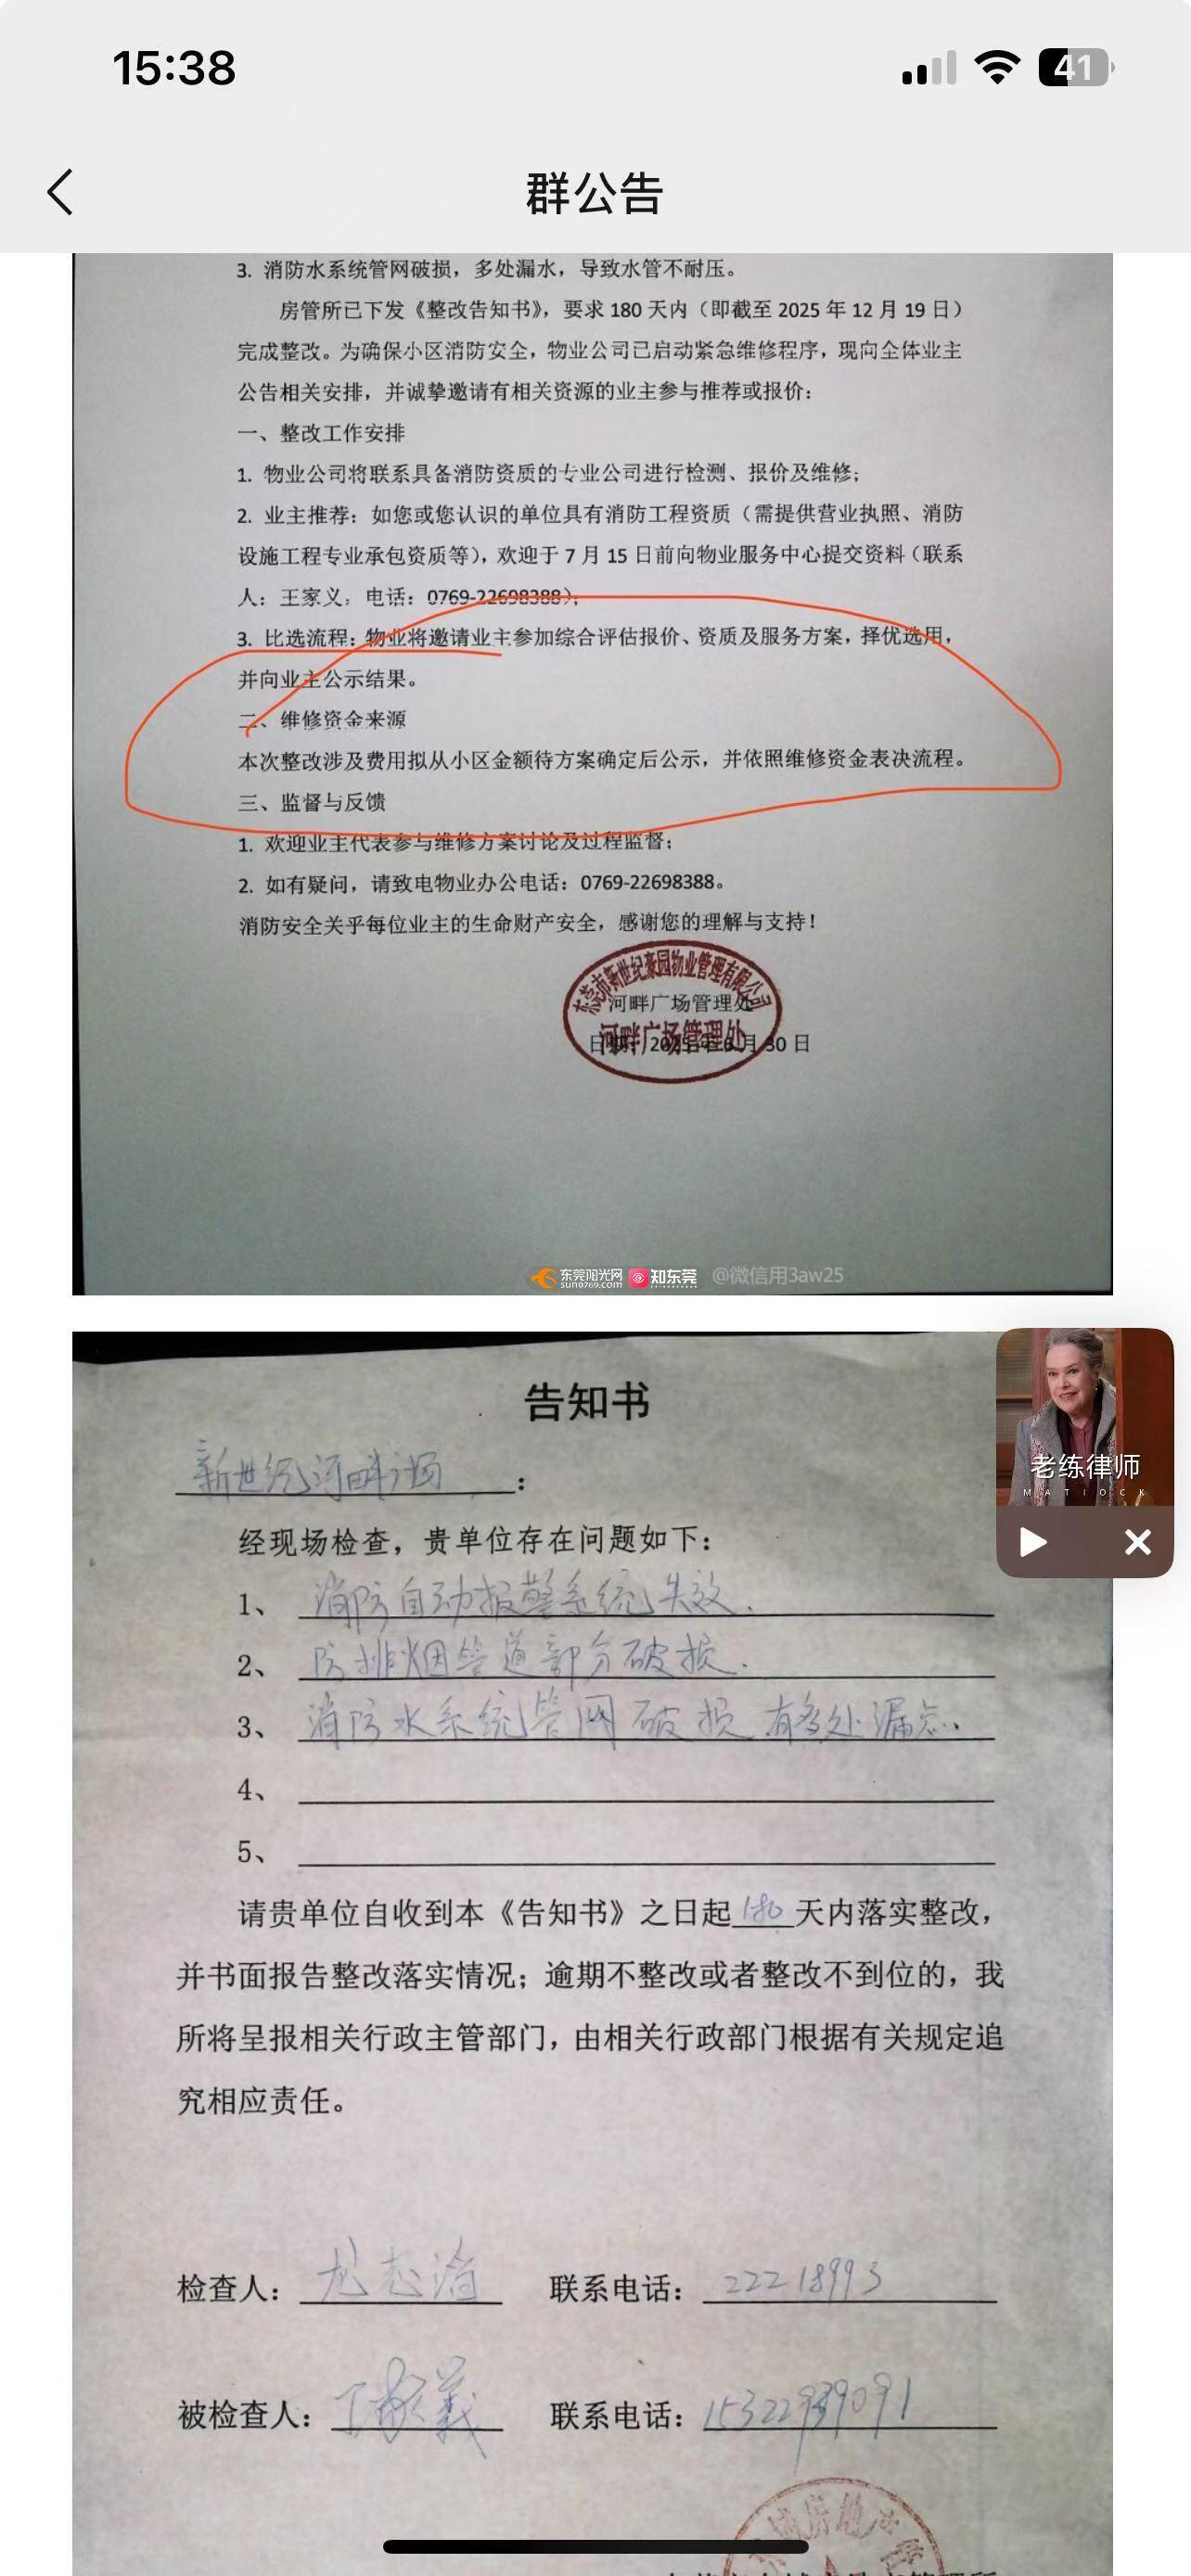 15:38
41
群公告
3. 消防水系统管网破损，多处漏水，导致水管不耐压。
房管所已下发《整改告知书》，要求 180 天内（即截至 2025 年 12 月 19 日）
完成整改。为确保小区消防安全，物业公司已启动紧急维修程序，现向全体业主
公告相关安排，并诚挚邀请有相关资源的业主参与推荐或报价：
一、整改工作安排
1. 物业公司将联系具备消防资质的专业公司进行检测、报价及维修；
2. 业主推荐：如您或您认识的单位具有消防工程资质（需提供营业执照、消防
设施工程专业承包资质等），欢迎于 7 月 15 日前向物业服务中心提交资料（联系
人：王家义，电话：0769-22698388）；
3. 比选流程：物业将邀请业主参加综合评估报价、资质及服务方案，择优选用，
并向业主公示结果。
二、维修资金来源
本次整改涉及费用拟从小区金额待方案确定后公示，并依照维修资金表决流程。
三、监督与反馈
1. 欢迎业主代表参与维修方案讨论及过程监督；
2. 如有疑问，请致电物业办公电话：0769-22698388。
消防安全关乎每位业主的生命财产安全，感谢您的理解与支持！
东莞市新世纪豪园物业管理有限公司
河畔广场管理处
河畔广场管理处
日期：2025 年 6 月 30 日
东莞阳光网
sun0769.com
知东莞
@微信用3aw25
告知书
新世纪河畔广场：
经现场检查，贵单位存在问题如下：
1、消防自动报警系统失效.
2、防排烟管道部分破损.
3、消防水系统管网破损 有多处漏点.
4、
5、
请贵单位自收到本《告知书》之日起180天内落实整改，
并书面报告整改落实情况；逾期不整改或者整改不到位的，我
所将呈报相关行政主管部门，由相关行政部门根据有关规定追
究相应责任。
检查人： 联系电话：22218993
被检查人： 联系电话：15322939091
老练律师
MATLOCK